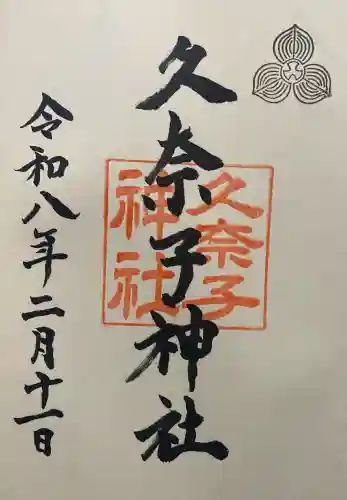 久奈子神社
久奈子
神社
令和八年二月十一日